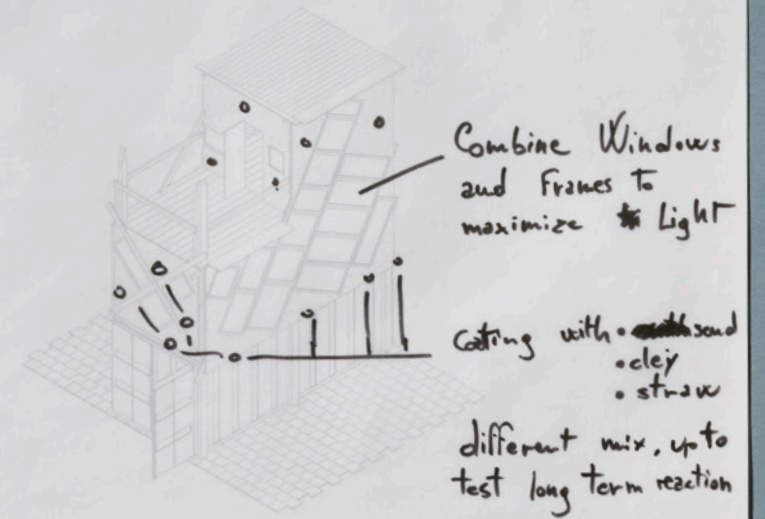 Combine Windows
and Frames to
maximize Light
Coating with • sand
• clej
• straw
different mix, up to
test long term reaction